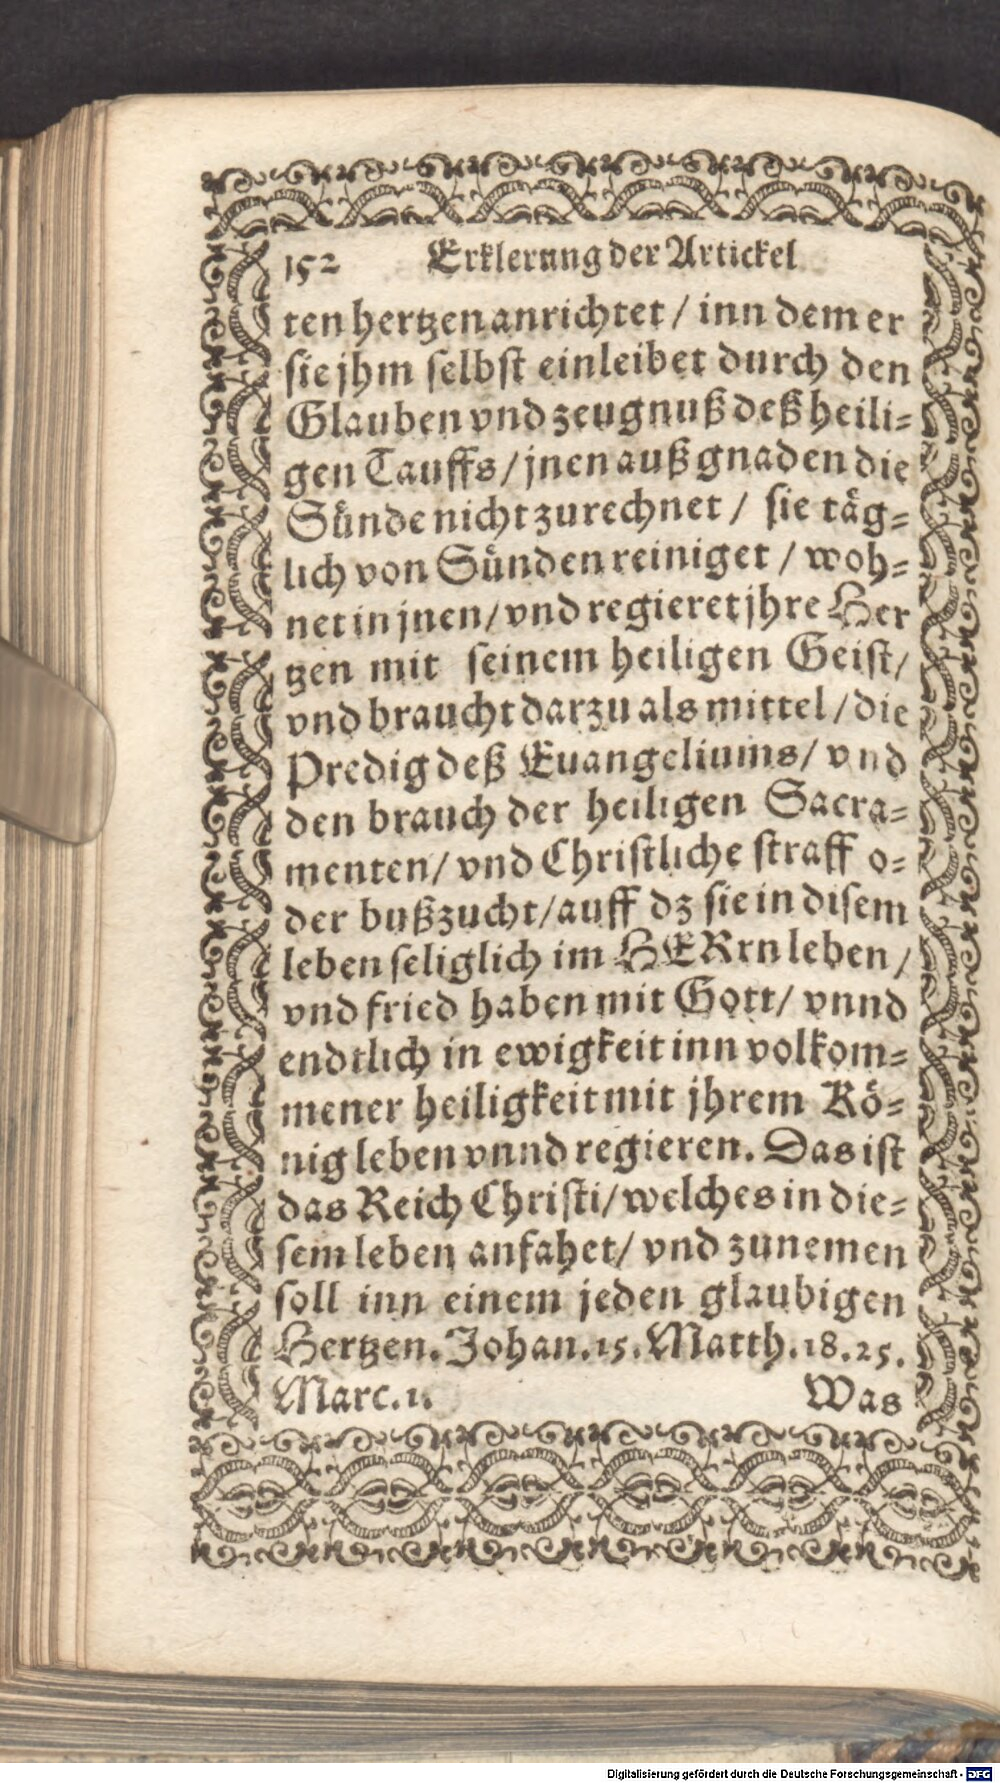 152 Erklerung der Artickel
ten hertzen anrichtet / inn dem er
sie jhm selbst einleibet durch den
Glauben vnd zeugnuß deß heili-
gen Tauffs / jnen auß gnaden die
Sünde nicht zurechnet / sie täg-
lich von Sünden reiniget / woh-
net in jnen / vnd regieret jhre Her
tzen mit seinem heiligen Geist /
vnd braucht darzu als mittel / die
Predig deß Euangeliums / vnd
den brauch der heiligen Sacra-
menten / vnd Christliche straff o-
der bußzucht / auff dz sie in disem
leben seliglich im HERrn leben /
vnd fried haben mit Gott / vnnd
endtlich in ewigkeit inn volkom-
mener heiligkeit mit jhrem Kö-
nig leben vnnd regieren. Das ist
das Reich Christi / welches in die-
sem leben anfahet / vnd zunemen
soll inn einem jeden glaubigen
Hertzen. Johan. 15. Matth. 18. 25.
Marc. 1. Was
Digitalisierung gefördert durch die Deutsche Forschungsgemeinschaft - DFG